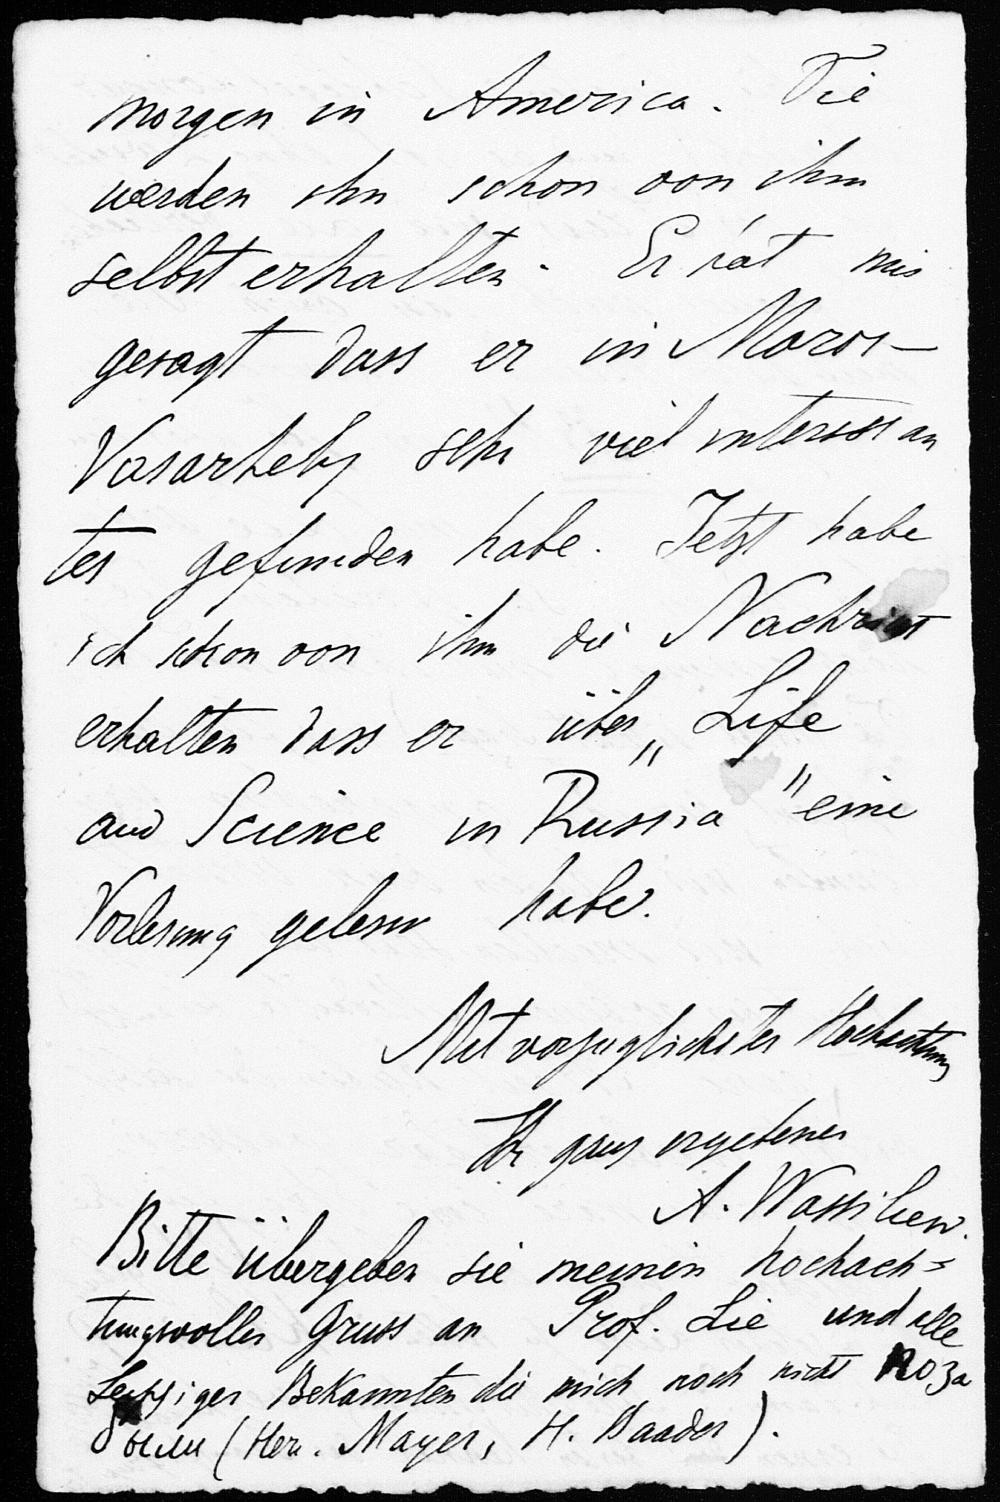 morgen in America. Sie
werden ihn schon von ihm
selbst erhalten. Er hat mir
gesagt dass er in Maros-
Vasarhely sehr viel interessan
tes gefunden habe. Jetzt habe
ich schon von ihm die Nachricht
erhalten dass er über „Life
and Science in Russia" eine
Vorlesung gelesen habe.
Mit vorzüglichster Hochachtung
Ihr ganz ergebener
A. Wassiliew.
Bitte übergeben sie meinen hochach=
tungsvollen Gruss an Prof. Lie und alle
Leipziger Bekannten die mich noch nicht поза
были (Herr. Mayer, H. Baader).